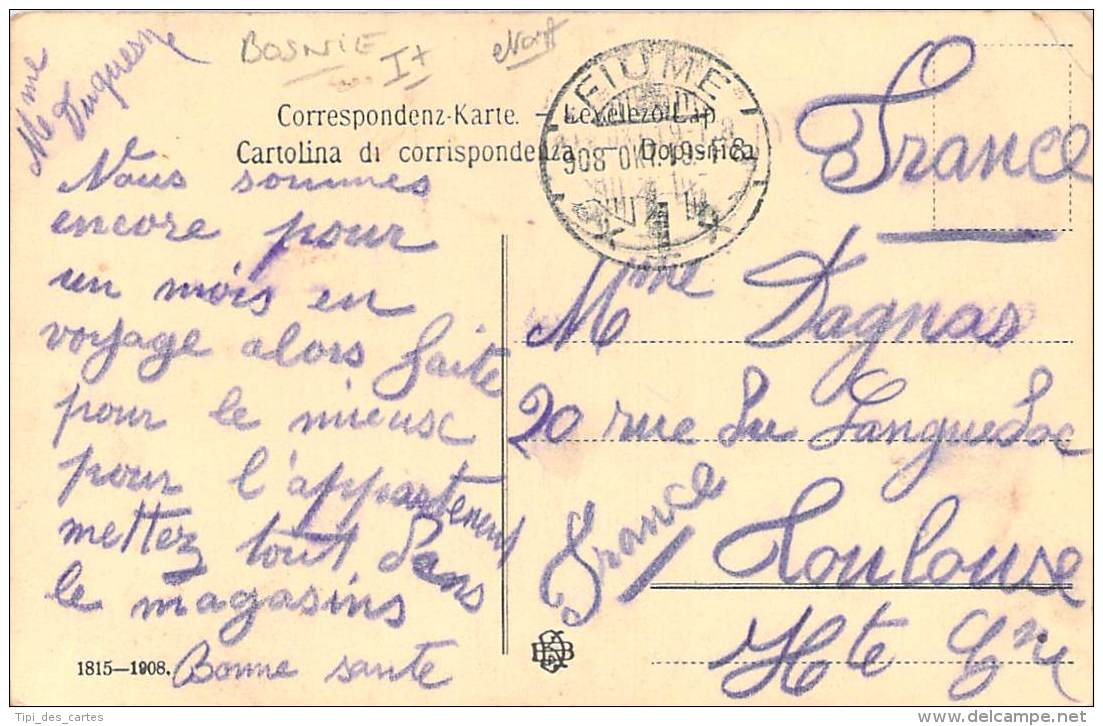 Mme
Duquesne
BOSNIE
FIUME
908 OKT.
Correspondenz-Karte. – Levelezo-Lap
Cartolina di corrispondenza – Dopisnica
France
Nous sommes
encore pour
un mois en
voyage alors faite
pour le mieux
pour l'appartement
mettez tout dans
le magasins
Bonne sante
1815—1908.
Mme Dagnas
20 rue du Languedoc
France
Toulouse
Hte Gne
Tipi_des_cartes